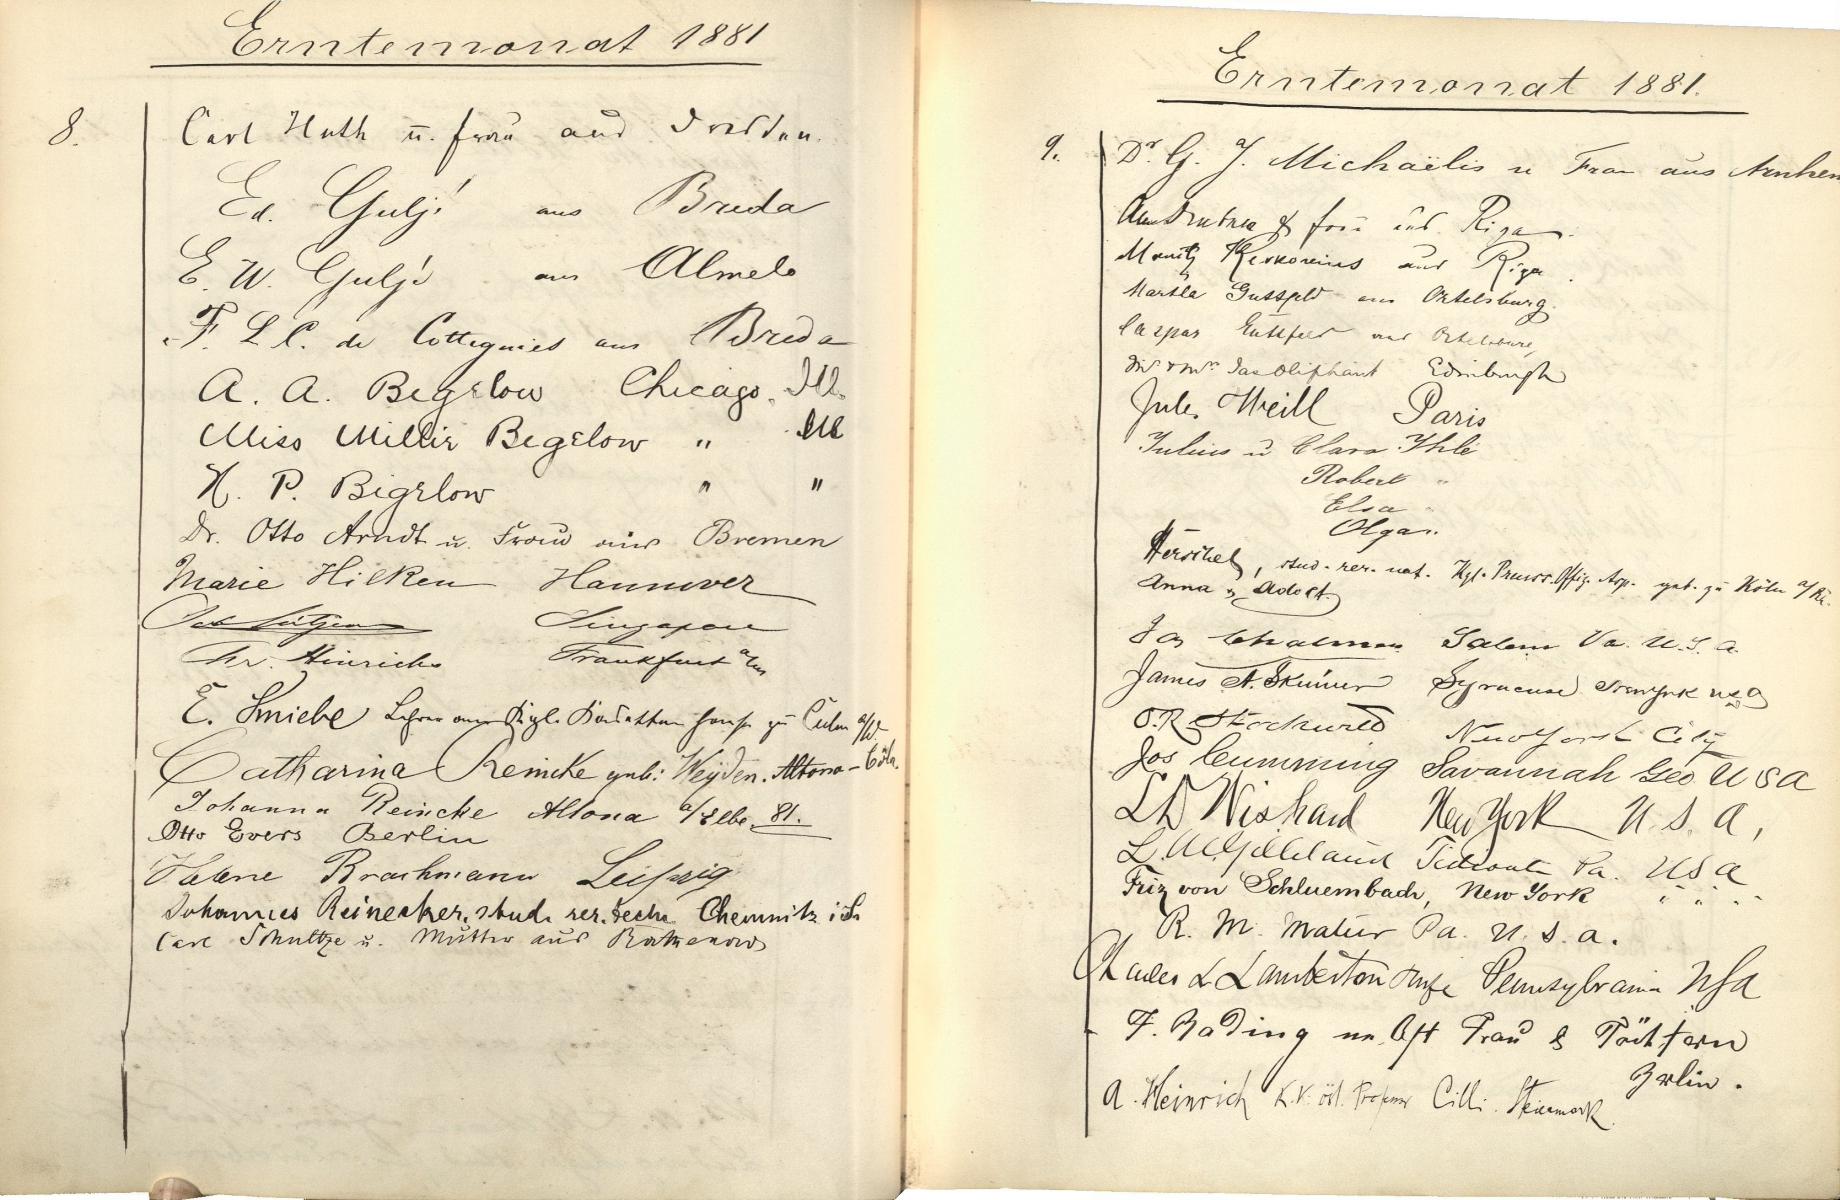 Erntemonat 1881
8.
Carl Huth u. Frau aus Dresden.
Ed. Guljé aus Breda
E. W. Guljé aus Almelo
F. L. C. de Cottignies aus Breda
A. A. Bigelow Chicago. Ill.
Miss Millie Bigelow " Ill
H. P. Bigelow " "
Dr. Otto Arndt u. Frau aus Bremen
Marie Hilken Hannover
Singapore
Chr. Hinrichs Frankfurt a/m
E. Kniebe Lehrer am Kgl. Kadettenhause zu Culm a/W.
Catharina Reincke geb: Weyden. Altona - Cöln.
Johanna Reincke Altona a/Elbe 81.
Otto Evers Berlin
Brachmann Leipzig
Johannes Reinecker, stud. rer. techn. Chemnitz i/S
Carl Schultze u. Mutter aus Rathenow
Erntemonat 1881.
9.
Dr. G. J. Michaëlis u Frau aus Arnhem
& Frau aus Riga.
Moritz Kerkovius aus Riga.
Martha Guttfeld aus Ortelsburg.
Caspar Guttfeld aus Ortelsburg,
Mr & Mrs Jas Oliphant Edinburgh
Jules Weill Paris
Julius u Clara Ihle
Robert "
Elsa "
Olga ".
Herschel, stud. rer. nat. Kgl. Preuss. Offiz. Asp. geb. zu Köln a/Rh.
Anna & Adolf.
Jas Chalmers Salem Va. U.S.A.
James A. Skinner Syracuse New York USA
O.R. New York City
Jos Cumming Savannah Geo USA
L D Wishard New York U. S. A,
L. McClelland Tidioute Pa. USA
Friz von Schluembach, New York " " "
R. M. Pa. U. S. A.
Charles L Lamberton Pennsylvania USA
F. Bading nebst Frau & Töchtern
Berlin.
A. Heinrich K.K. öst. Professor Cilli. Steiermark.